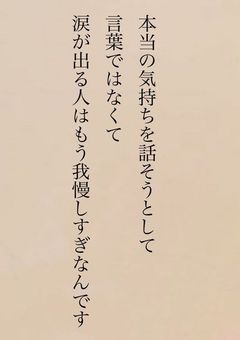 本当の気持ちを話そうとして
言葉ではなくて
涙が出る人はもう我慢しすぎなんです